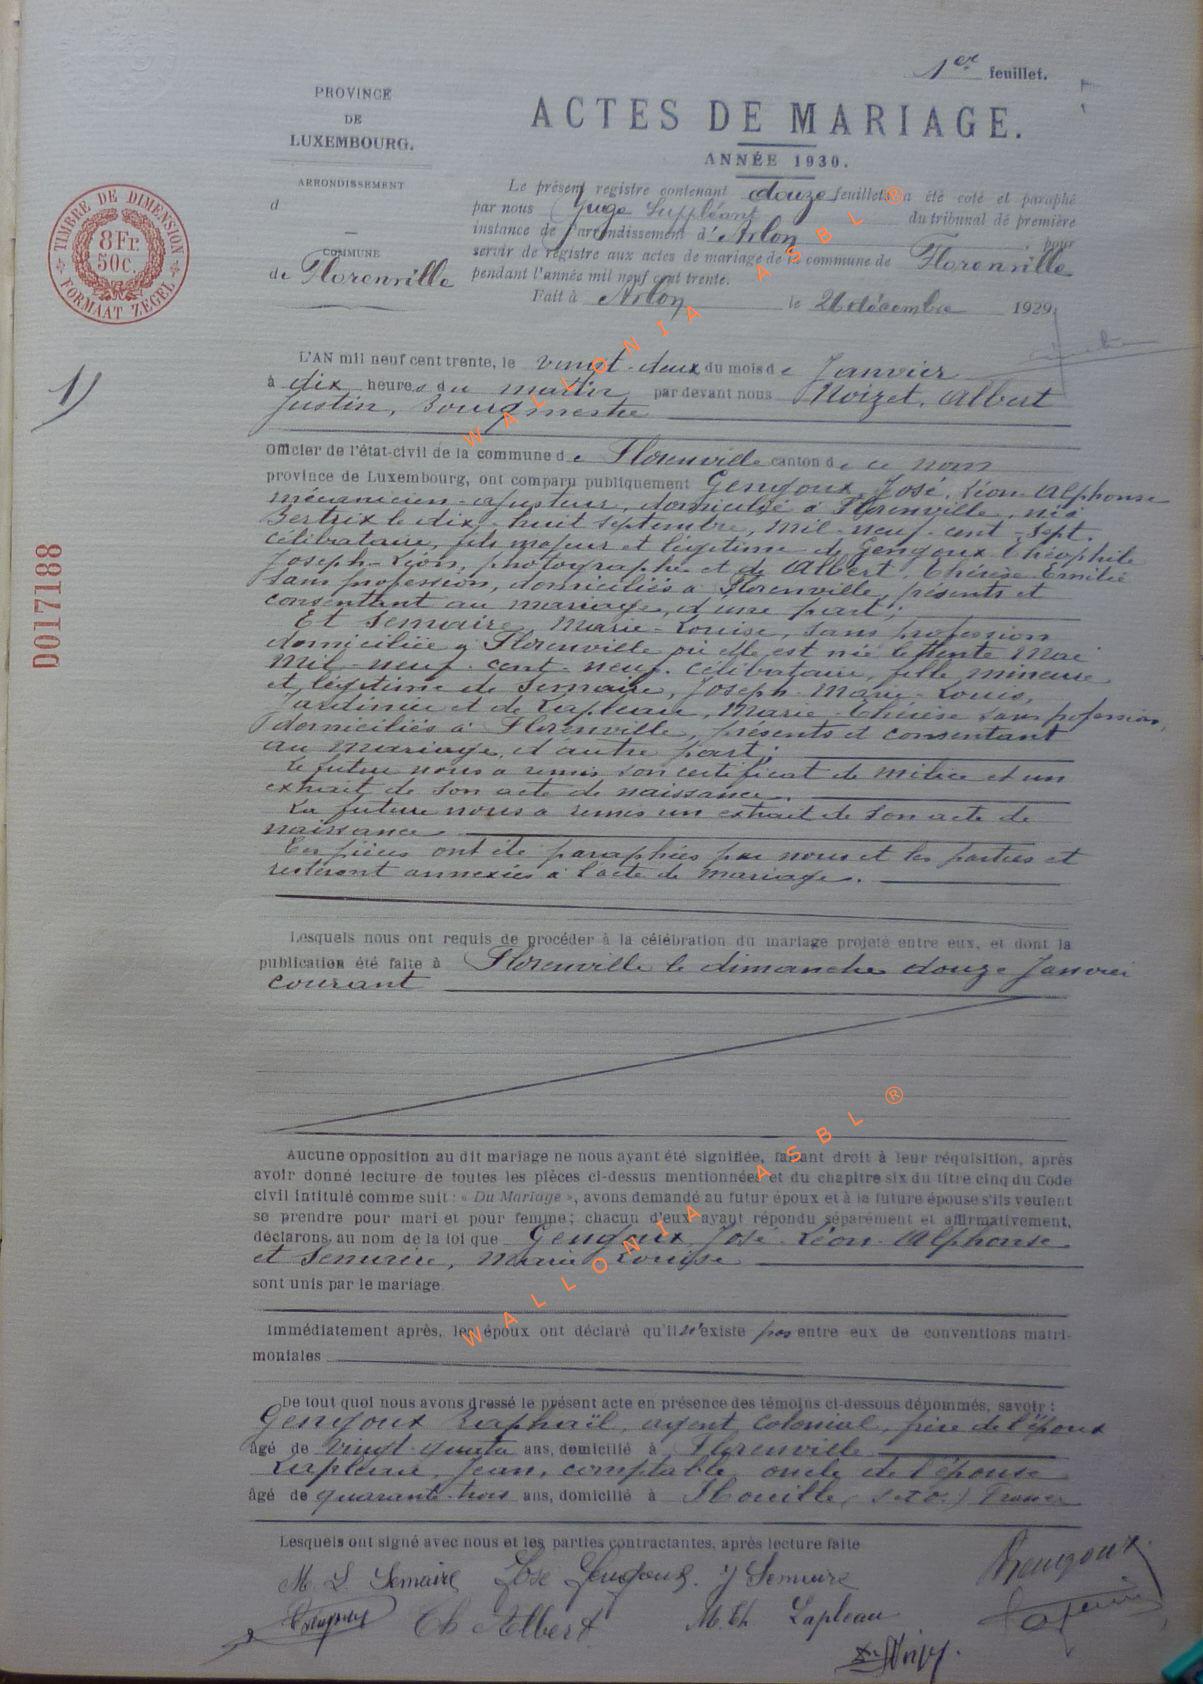 1er feuillet.
PROVINCE
DE
LUXEMBOURG.
ACTES DE MARIAGE.
ANNÉE 1930.
ARRONDISSEMENT
d
COMMUNE
de Florenville
TIMBRE DE DIMENSION
8Fr.
50c.
FORMAAT ZEGEL
D017188
Le présent registre contenant douze feuillets a été coté et paraphé
par nous Juge Suppléant du tribunal de première
instance de l'arrondissement d'Arlon, pour
servir de registre aux actes de mariage de la commune de Florenville
pendant l'année mil neuf cent trente.
Fait à Arlon le 26 décembre 1929
1)
L'AN mil neuf cent trente, le vingt-deux du mois de Janvier
à dix heures du matin par devant nous Noizet, Albert
Justin, Bourgmestre
Officier de l'état-civil de la commune de Florenville canton de ce nom
province de Luxembourg, ont comparu publiquement Gengoux, José, Léon-Alphonse
mécanicien-ajusteur, domicilié à Florenville, né à
Bertrix le dix-huit septembre, mil-neuf-cent-sept.
célibataire, fils majeur et légitime de Gengoux Théophile
Joseph-Léon, photographe et de Albert, Thérèse-Emilie
sans profession, domiciliés à Florenville, présents et
consentant au mariage, d'une part;
Et Semaire, Marie-Louise, sans profession
domiciliée à Florenville où elle est née le trente Mai
Mil-neuf-cent-neuf. célibataire, fille mineure
et légitime de Semaire, Joseph-Marie-Louis,
Jardinier et de Lapleau, Marie-Thérèse sans profession,
domiciliés à Florenville, présents et consentant
au mariage, d'autre part;
Le futur nous a remis son certificat de milice et un
extrait de son acte de naissance.
La future nous a remis un extrait de son acte de
naissance
Ces pièces ont été paraphées par nous et les parties et
resteront annexées à l'acte de mariage.
Lesquels nous ont requis de procéder à la célébration du mariage projeté entre eux, et dont la
publication été faite à Florenville le dimanche douze Janvier
courant
Aucune opposition au dit mariage ne nous ayant été signifiée, faisant droit à leur réquisition, après
avoir donné lecture de toutes les pièces ci-dessus mentionnées et du chapitre six du titre cinq du Code
civil intitulé comme suit : « Du Mariage », avons demandé au futur époux et à la future épouse s'ils veulent
se prendre pour mari et pour femme; chacun d'eux ayant répondu séparément et affirmativement,
déclarons, au nom de la loi que Gengoux, José-Léon-Alphonse
et Semaire, Marie Louise
sont unis par le mariage.
Immédiatement après, les époux ont déclaré qu'il n'existe pas entre eux de conventions matri-
moniales
De tout quoi nous avons dressé le présent acte en présence des témoins ci-dessous dénommés, savoir :
Gengoux Raphaël, agent colonial, frère de l'époux
âgé de vingt-quatre ans, domicilié à Florenville
Lapleau, Jean, comptable oncle de l'épouse
âgé de quarante-trois ans, domicilié à Houille (S et O.) France
Lesquels ont signé avec nous et les parties contractantes, après lecture faite
M. L. Semaire José Gengoux. J Semaire
Gengoux
Th Albert M. Th Lapleau
WALLONIA ASBL ®
WALLONIA ASBL ®